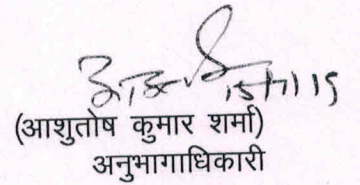 15/7/15
(आशुतोष कुमार शर्मा)
अनुभागाधिकारी